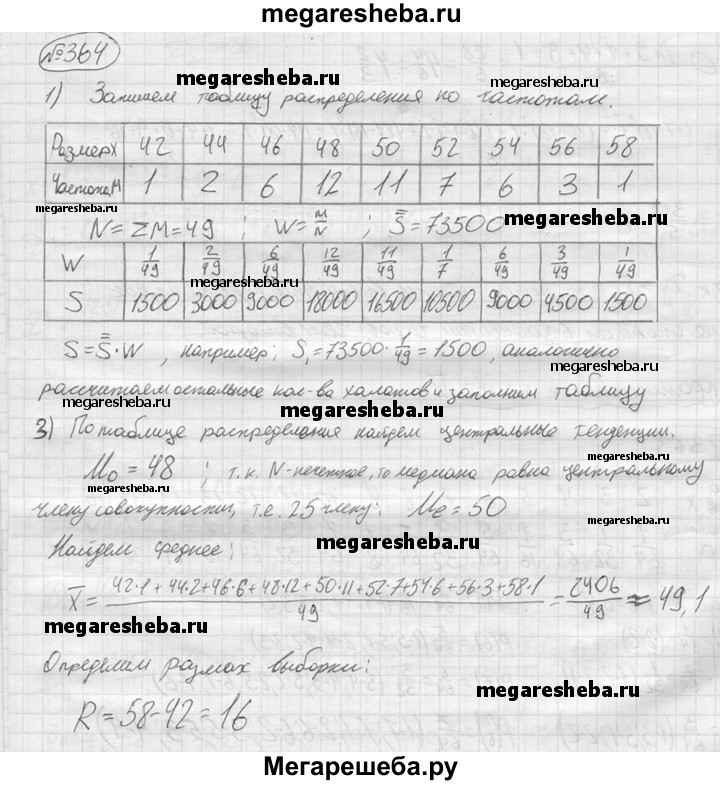 megaresheba.ru
№364
megaresheba.ru
1) Запишем таблицу распределения по частотам.
Размер X 42 44 46 48 50 52 54 56 58
Частота, M 1 2 6 12 11 7 6 3 1
megaresheba.ru
N = ΣM = 49 ; W = M/N ; S̿ = 73500
megaresheba.ru
W 1/49 2/49 6/49 12/49 11/49 1/7 6/49 3/49 1/49
megaresheba.ru
S 1500 3000 9000 18000 16500 10500 9000 4500 1500
S = S̿·W , например; S₁ = 73500·1/49 = 1500, аналогично
рассчитаем остальные кол-ва халатов и заполним таблицу
megaresheba.ru
3) По таблице распределения найдем центральные тенденции.
Mo = 48 ; т.к. N-нечетное, то медиана равна центральному
megaresheba.ru
члену совокупности, т.е. 25 члену: Me = 50
megaresheba.ru
Найдем среднее:
megaresheba.ru
X̅ = 42·1+44·2+46·6+48·12+50·11+52·7+54·6+56·3+58·1/49 = 2406/49 ≈ 49,1
megaresheba.ru
Определим размах выборки:
megaresheba.ru
R = 58-42 = 16
Мегарешеба.ру